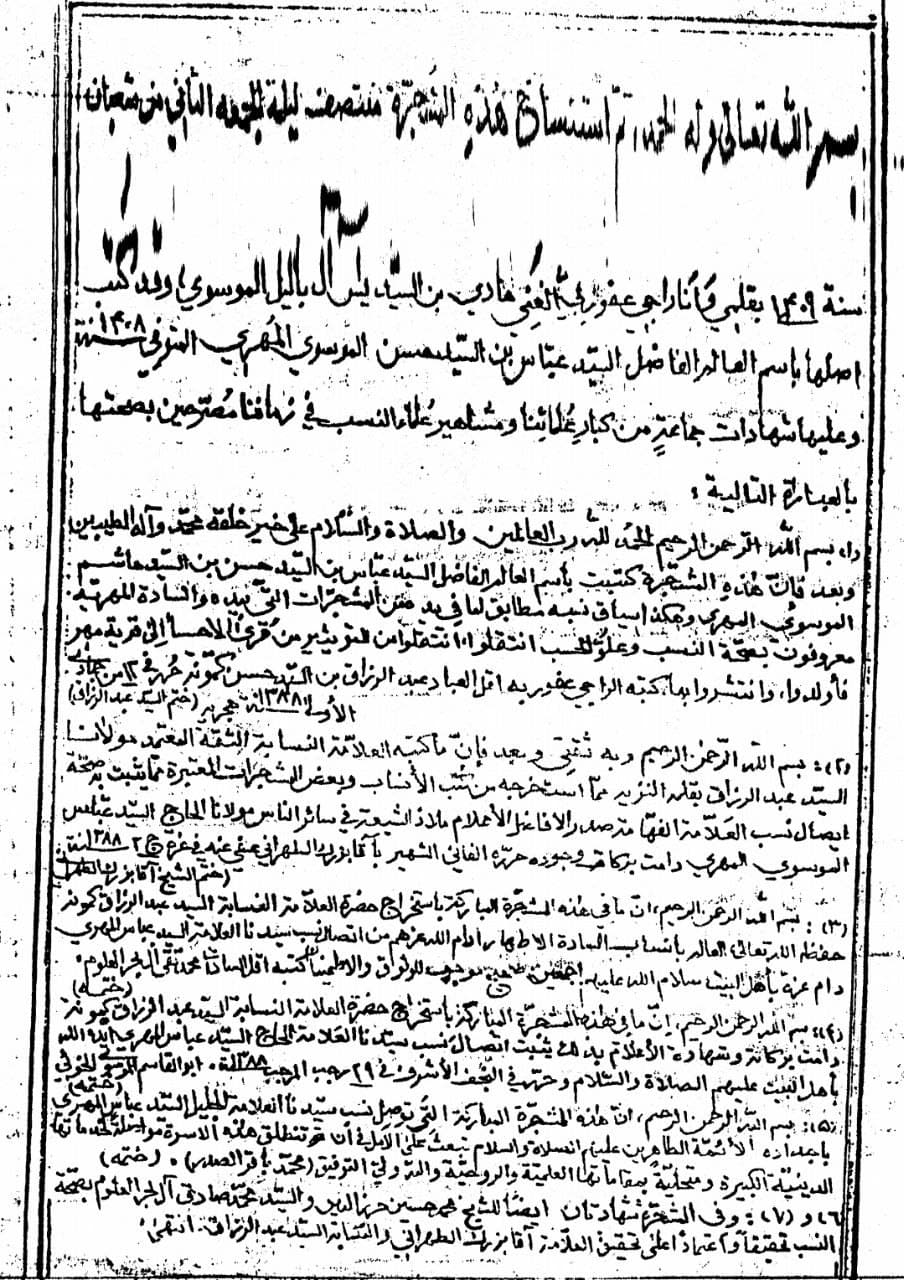 بسم الله تعالى وله الحمد، تمّ استنساخ هذه المشجّرة منتصف ليلة الجمعه الثاني من شعبان
سنة ١٤٠٩ بقلمي وأنا راجي عفو ربّي الغني هادي بن السيّد يس آل باليل الموسوي، وقد كتب
اصلها باسم العالم الفاضل السيّد عبّاس بن السيّد حسن الموسوي المُهري المتوفى سنة ١٤٠٨
وعليها شهادات جماعةٍ من كبار عُلمائنا ومشاهير عُلماء النسب في زماننا مُصرّحين بصحتها
بالعبارة التالية:
(١) بسم الله الرحمن الرحيم الحمد لله رب العالمين والصلاة والسّلام على خير خلقه محمّد وآله الطيبين
وبعد فانّ هذه المشجّرة كتبت بأسم العالم الفاضل السيّد عباس بن السيّد حسن بن السيّد هاشم
الموسوي المهري وهكذا سياق نسبه مطابق لما في يده من المشجرات التي بيده والسادة المهرية
معروفون بصحّة النسب وعلوّ الحسب انتقلوا من التويثير من قُرى الاحساء إلى قرية مهر
فأولدوا، وانتشروا بها، كتبه الراجي عفو ربه اقل العباد عبد الرزاق بن السيّد حسن كمونة حُرر في ١٢ من جمادي
الأولى ١٣٨٨ هجرية (ختم السيّد عبد الرزاق)
(٢): بسم الله الرّحمن الرحيم وبه ثقتي وبعد فإنّ ما كتبه العلاّمة النسابة الثقة المعتمد مولانا
السيّد عبد الرزاق بقلمه الشريف ممّا استخرجه من كتب الأنساب وبعض المشجرات المعتبرة ممّا يثبت به صحّة
ايصال نسب العلاّمة الفهّامة صدر الافاضل الأعلام ملاذ الشيعة في سائر الناس مولانا الحاج السيّد عباس
الموسوي المهري دامت بركات وجوده حرّره الفاني الشهير بآقا بزرك الطهراني عفي عنه في غرّة ج٢ ١٣٨٨
(ختم الشيخ آقا بزرك الطهراني)
(٣): بسم الله الرحمن الرحيم، انّ ما في هذه المشجّرة المباركة باستخراج حضرة العلاّمة النسابة السيد عبد الرزاق كمونة
حفظه الله تعالى العالم بأنساب السادة الاطهار ادام الله عزهم من اتصال نسب سيّدنا العلامة السيد عباس المهري
دام عزه بأهل البيت سلام الله عليهم اجمعين موجب للوثوق والاطمينان كتبه اقل السادات محمد تقي آل بحر العلوم.
(ختمه)
(٤): بسم الله الرحمن الرحيم، إنّ ما في هذه المشجّرة المباركة باستخراج حضرة العلامة النسابة السيّد عبد الرزاق كمونة
دامت بركاته وشهادة الأعلام بذلك يثبت اتصال نسب سيّدنا العلامة الحاج السيّد عباس المهري ايده الله
بأهل البيت عليهم الصلاة والسّلام وحرّر في النجف الأشرف في ٢٩ رجب المرجب ١٣٨٨. ابو القاسم الموسوي الخوئي
(ختمه)
(٥): بسم الله الرحمن الرحيم، انّ هذه المشجّرة المباركة التي توصل نسب سيّدنا العلامة الجليل السيّد عباس المهري
بأجداده الأئمة الطاهرين عليهم الصلاة والسلام تبعث على الامل في أن تنطلق هذه الاسرة مواصلة خدماتها
الدينيّة الكبيرة ومتحلية بمقاماتها العلمية والروحيّة والله وليّ التوفيق (محمّد باقر الصدر). (ختمه)
(٦) و (٧): وفي المشجرة شهادتان ايضًا للشيخ محمد حسين حرز الدين والسيّد محمّد صادق آل بحر العلوم بصحّة
النسب تحقيقاً واعتماداً على تحقيق العلاّمة آقا بزرك الطهراني والنسّابة السيّد عبد الرزاق. انتهى